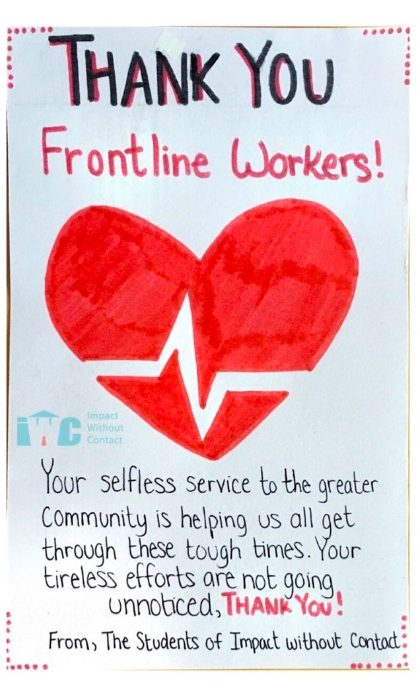 THANK YOU
Frontline Workers!
iWC
Impact
Without
Contact
Your selfless service to the greater
Community is helping us all get
through these tough times. Your
tireless efforts are not going
unnoticed, THANK YOU!
From, The Students of Impact without Contact